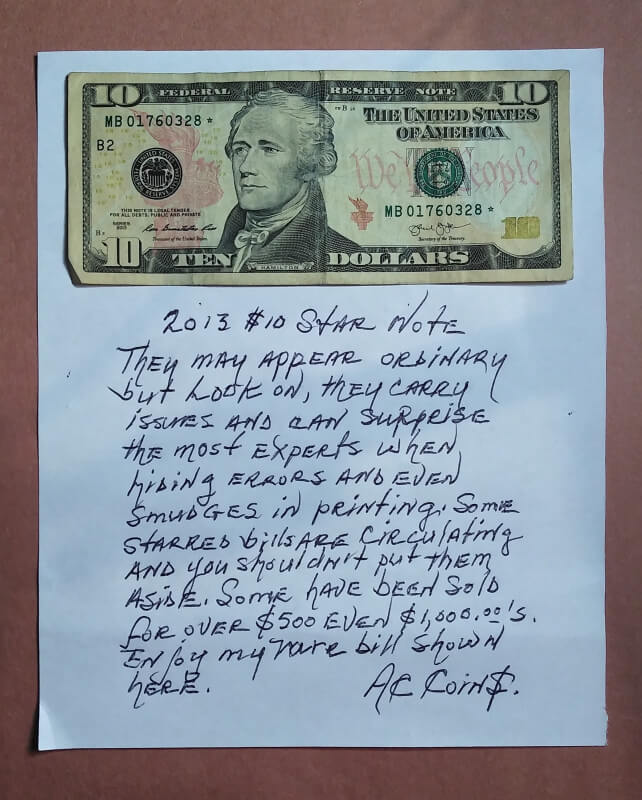 10 FEDERAL RESERVE NOTE 10
MB 01760328 *
THE UNITED STATES
OF AMERICA
B2
We The People
MB 01760328 *
THIS NOTE IS LEGAL TENDER
FOR ALL DEBTS, PUBLIC AND PRIVATE
SERIES
2013
Treasurer of the United States.
Secretary of the Treasury.
10
10 TEN HAMILTON DOLLARS
2013 $10 STAR NOTE
THEY MAY APPEAR ORDINARY
but LOOK ON, THEY CARRY
ISSUES AND CAN SURPRISE
the most EXPERTS WHEN
hiDING ERRORS AND EVEN
SMUDGES IN PRINTING. SOME
STARRED bills ARE CIRCULATING
AND YOU SHOULDN'T PUT THEM
ASIDE. SOME HAVE BEEN SOLD
FOR OVER $500 EVEN $1,000.00's.
ENJOY MY RARE bill SHOWN
HERE.
AC COIN$.